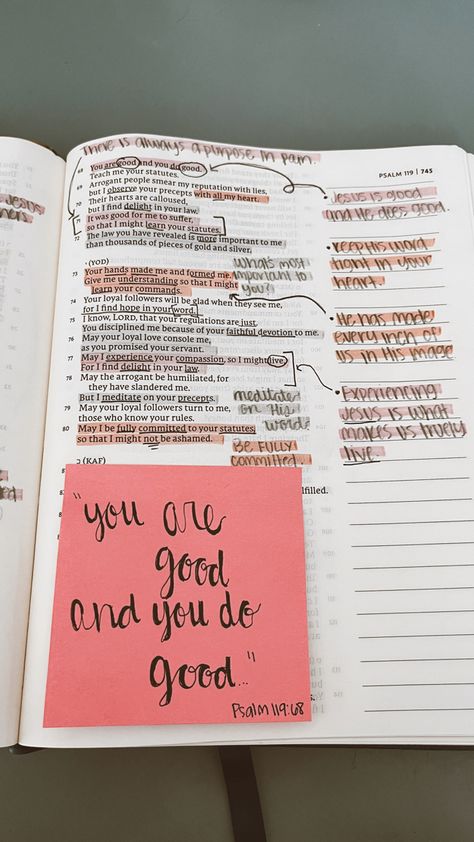 There is always a purpose in pain.
PSALM 119 | 745
68 You are good and you do good.
Teach me your statutes.
69 Arrogant people smear my reputation with lies,
but I observe your precepts with all my heart.
70 Their hearts are calloused,
but I find delight in your law.
71 It was good for me to suffer,
so that I might learn your statutes.
72 The law you have revealed is more important to me
than thousands of pieces of gold and silver.
י (YOD)
73 Your hands made me and formed me.
Give me understanding so that I might
learn your commands.
74 Your loyal followers will be glad when they see me,
for I find hope in your word.
75 I know, LORD, that your regulations are just.
You disciplined me because of your faithful devotion to me.
76 May your loyal love console me,
as you promised your servant.
77 May I experience your compassion, so I might live.
For I find delight in your law.
78 May the arrogant be humiliated, for
they have slandered me.
But I meditate on your precepts.
79 May your loyal followers turn to me,
those who know your rules.
80 May I be fully committed to your statutes,
so that I might not be ashamed.
כ (KAF)
lfilled.
What's most
important to
you?
meditate
on His
word!
Be Fully
committed
Jesus is good
and He does good.
• Keep His word
tight in your
heart.
• He has made
every inch of
us in His image
• Experiencing
Jesus is what
makes us truly
live.
Jesus
"you are
good
and you do
good..."
Psalm 119:68